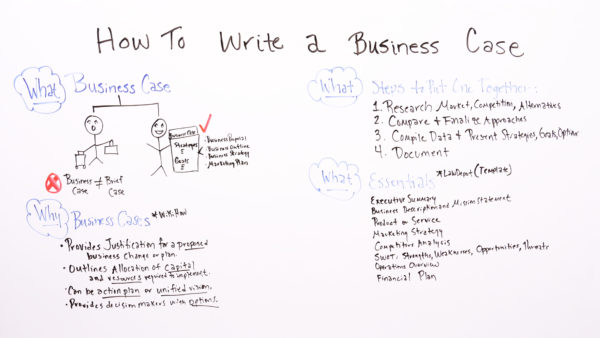 How To Write a Business Case
What
Business Case
Business Case
Strategies
&
Goals
&
• Business Proposal
• Business Outline
• Business Strategy
• Marketing Plan
Business Case ≠ Brief Case
Why
Business Cases *WikiHow
• Provides Justification for a proposed
business change or plan.
• Outlines Allocation of capital
and resources required to implement.
• Can be action plan or unified vision.
• Provides decision makers with options.
What
Steps to Put One Together:
1. Research Market, Competition, Alternatives
2. Compare + Finalize Approaches
3. Compile Data + Present Strategies, Goals, Options
4. Document
What
Essentials *LabDepot (Template)
Executive Summary
Business Description and Mission Statement
Product or Service
Marketing Strategy
Competitor Analysis
SWOT: Strengths, Weaknesses, Opportunities, Threats
Operations Overview
Financial Plan